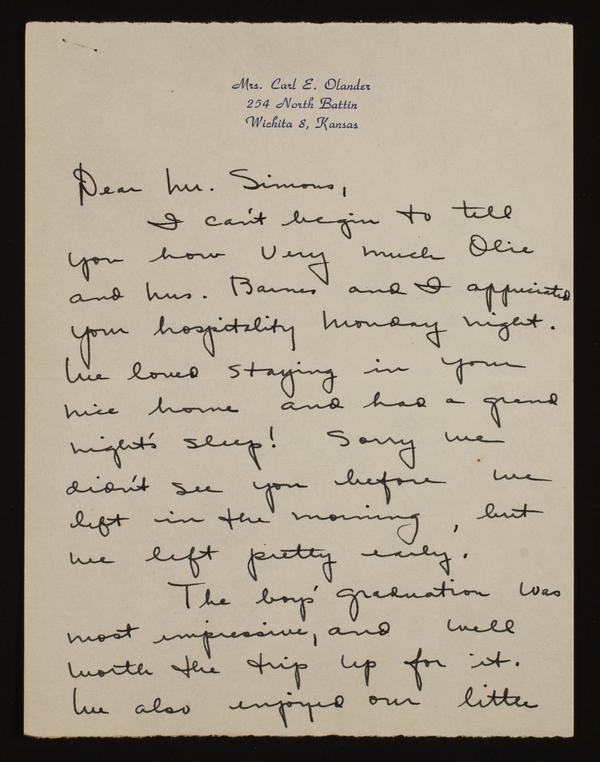 Mrs. Carl E. Olander
254 North Battin
Wichita 8, Kansas
Dear Mr. Simons,
I can't begin to tell
you how very much Olie
and Mrs. Barnes and I appreciated
your hospitality Monday night.
We loved staying in your
nice home and had a grand
night's sleep! Sorry we
didn't see you before we
left in the morning, but
we left pretty early.
The boys' graduation was
most impressive, and well
worth the trip up for it.
We also enjoyed our little